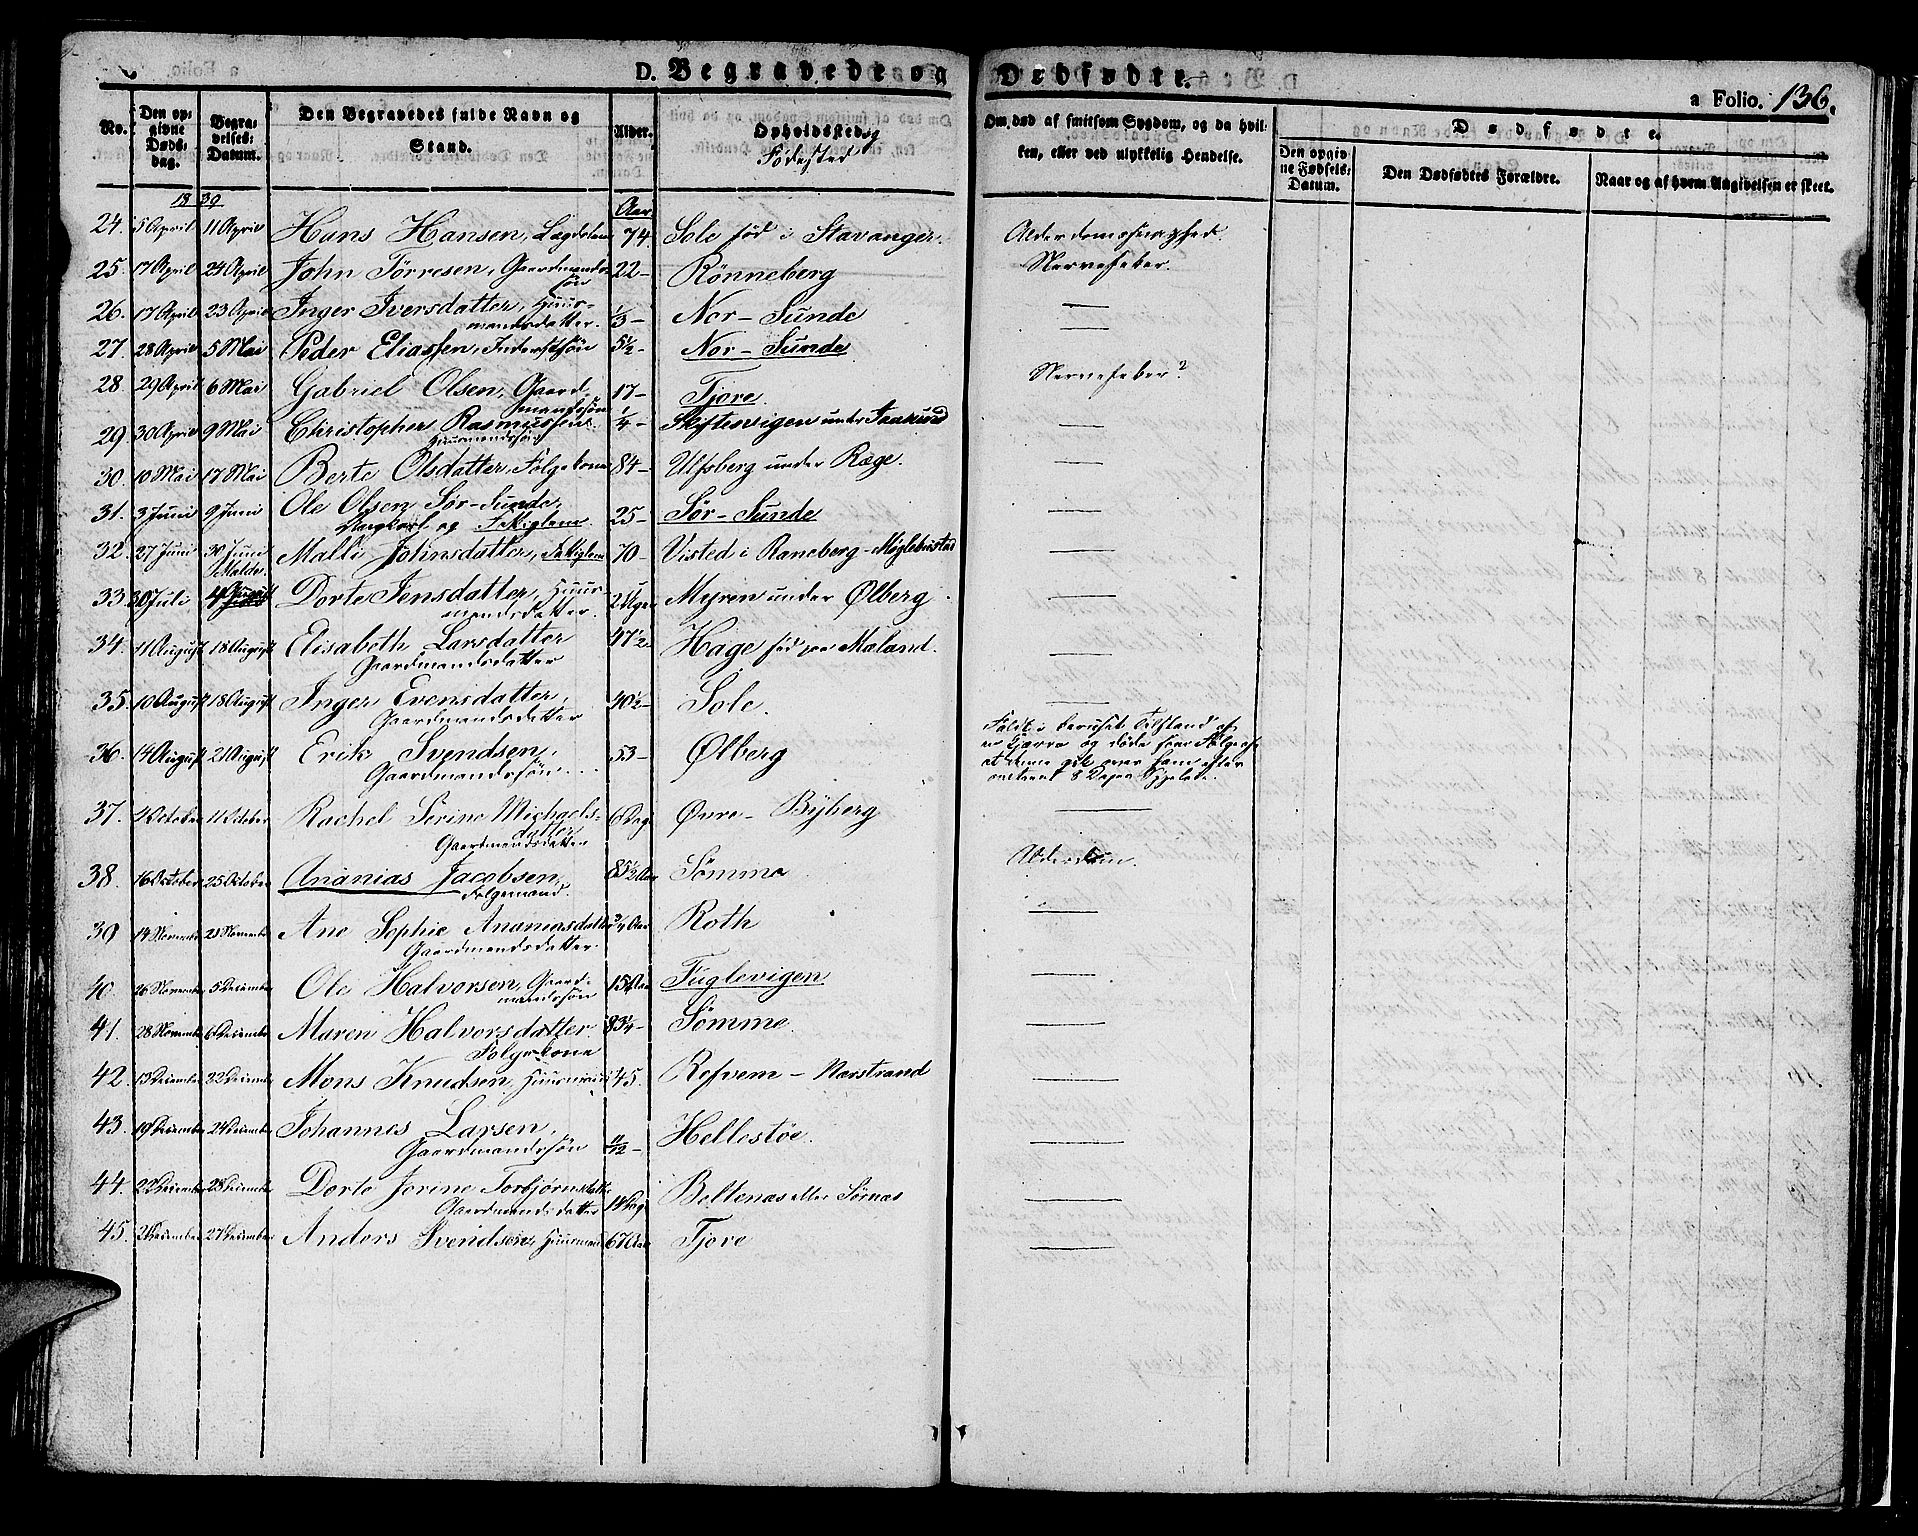 D. Begravede og Dødfødte. a Folio. 136.
No. Den opgivne Døds-dag. Begravelses-Datum. Den Begravedes fulde Navn og Stand. Alder. Opholdssted og Fødested Om død af smitsom Sygdom, og da hvilken, eller ved ulykkelig Hendelse. Dødfødte. Den opgivne Fødsels-Datum. Den Dødfødtes Forældre. Naar og af hvem Angivelsen er skeet.
1839 Aar
24. 5 April 11 April Hans Hansen, Lægdslem 74 Sole fød i Stavanger. Alderdomssvaghed.
25. 17 April 24 April John Tørresen, Gaardmands- 22- Rönneberg Nervefeber.
søn
26. 17 April 23 April Inger Iversdatter, Huus- 1/3- Nor-Sunde —
mandsdatter.
27. 28 April 5 Mai Peder Eliassen, Inderstsøn 5½- Nor-Sunde —
28. 29 April 6 Mai Gabriel Olsen, Gaard- 17- Tjore. Nervefeber?
mandssøn
29 30 April 9 Mai Christopher Rasmussen 1/4- Skiftesvigen under —
Huusmandssøn
30. 10 Mai 17 Mai Berte Olsdatter, Følgekone 84- Ulfsberg under Ræge. —
31. 3 Juni 9 Juni Ole Olsen Sør-Sunde, 25- Sør-Sunde —
Ungkarl og Fattiglem.
32. 27 Juni 30 Juni Malli Johnsdatter, Fattiglem 70- Visted i Raneberg- —
33. 30 Juli 4 Dorte Jensdatter, Huus- 2 Uger Myren under Ølberg —
mandsdatter.
34. 11 August 18 August Elisabeth Larsdatter 47½ Hage fød paa Mæland. —
Gaardmandsdatter
35. 10 August 18 August Inger Evensdatter, 40½- Sole. —
Gaardmandsdatter
36. 14 August 21 August Erik Svendsen, 53- Ølberg Faldt i beruset Tilstand af
Gaardmandssøn en Kjærre og døde som Følge af
at denne gik over ham efter
omtrent 8 Dages Sygeleie.
37. 4 October 11 October Rachel Serine Michaels- 6 Dag Øvre-Byberg —
datter
Gaardmandsdatter
38. 16 October 25 October Ananias Jacobsen, 85½ Aar Sömme Alderdom.
Følgemand.
39 14 November 23 November Ane Sophie Ananiasdatter 3/4 Aar Roth —
Gaardmandsdatter.
40. 26 November 5 December Ole Halvorsen, Gaard- Fuglevigen —
mandssøn
41. 28 November 6 December Maren Halvorsdatter 83¼- Sömme. —
Følgekone
42. 13 December 22 December Mons Knudsen, Huusmand 45. Refvem-Narstrand —
43. 19 December 24 December Johannes Larsen, 11/12- Hellestöe. —
Gaardmandssøn
44. 22 December 28 December Dorte Jorine Torbjørnsdatter Beltenæs eller Sørnæs —
Gaardmandsdatter
45. 27 December Anders Svendsen, Huusmand 67 Aar Tjore —